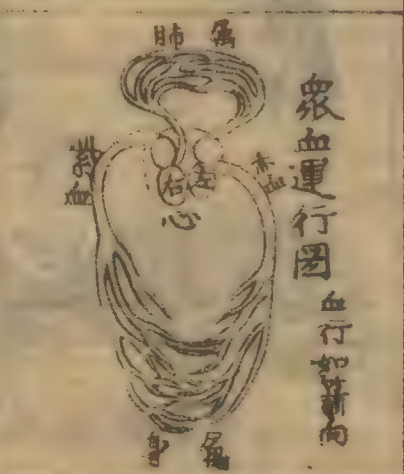 衆血運行圖
血行如箭向
屬肺
紫血
赤血
右左
心
屬身